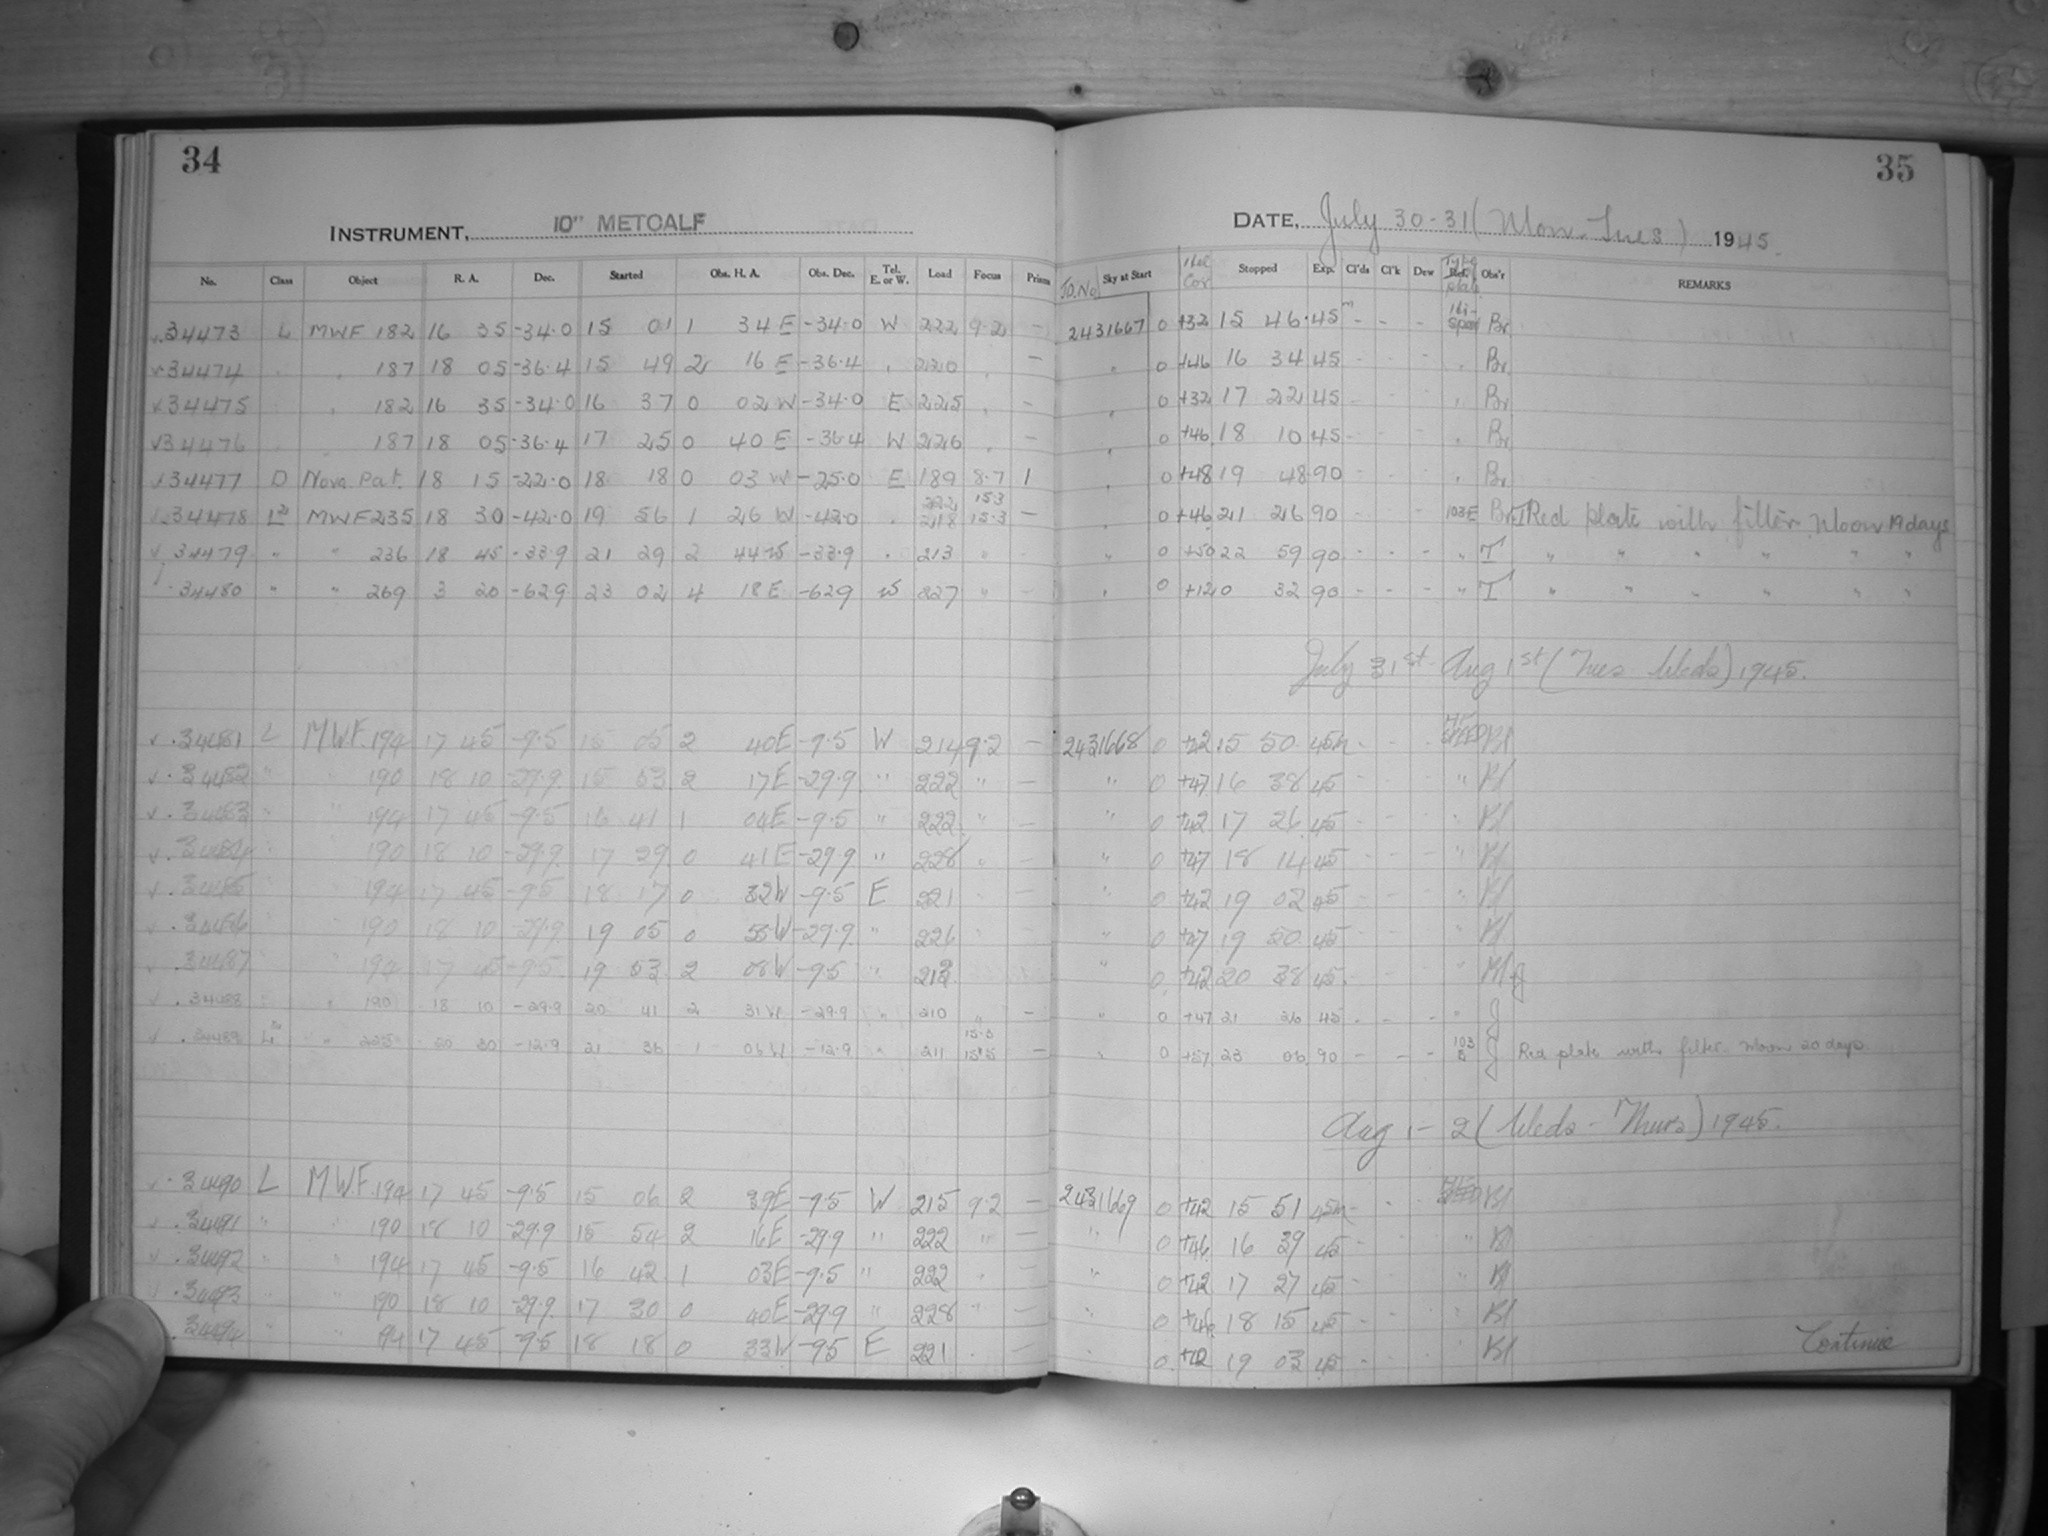 34
35
INSTRUMENT, 10" METCALF
DATE, July 30-31 (Mon-Tues) 1945.
No. Class Object R. A. Dec. Started Obs. H. A. Obs. Dec. Tel. E. or W. Load Focus Prism J.D. No. Sky at Start Stopped Exp. Cl'ds Cl'k Dew Type Plate Obs'r REMARKS
34473 L MWF 182 16 35 -34.0 15 01 1 34 E -34.0 W 222 9.2 - 2431667 0 +32 15 46 45m - - - Hi-Speed Br
34474 " 187 18 05 -36.4 15 49 2 16 E -36.4 " 220 " - " 0 +46 16 34 45 - - - " Br
34475 " 182 16 35 -34.0 16 37 0 02 W -34.0 E 225 " - " 0 +32 17 22 45 - - - " Br
34476 " 187 18 05 -36.4 17 25 0 40 E -36.4 W 226 " - " 0 +46 18 10 45 - - - " Br
34477 D Nova Pat. 18 15 -22.0 18 18 0 03 W -25.0 E 189 8.7 1 " 0 +48 19 48 90 - - - " Br
34478 MWF 235 18 30 -42.0 19 56 1 26 W -42.0 " 218 15.3 " 0 +46 21 26 90 - - - 103E Br Red plate with filter. Moon 19 days
34479 " " 236 18 45 -33.9 21 29 2 44 W -33.9 " 213 " - " 0 +50 22 59 90 - - - " T " " " " " "
34480 " " 269 3 20 -62.9 23 02 4 18 E -62.9 W 227 " - " 0 +12 0 32 90 - - - " T " " " " " "
July 31st - Aug 1st (Tues-Weds) 1945.
34481 L MWF. 194 17 45 -9.5 15 05 2 40E -9.5 W 214 9.2 - 2431668 0 +42 15 50 45m - - - HI-SPEED Bl
34482 " " 190 18 10 -29.9 15 53 2 17E -29.9 " 222 " - " 0 +47 16 38 45 - - - " Bl
34483 " " 194 17 45 -9.5 16 41 1 04E -9.5 " 222 " - " 0 +42 17 26 45 - - - " Bl
34484 " " 190 18 10 -29.9 17 29 0 41E -29.9 " 228 " - " 0 +47 18 14 45 - - - " Bl
34485 " " 194 17 45 -9.5 18 17 0 32W -9.5 E 221 " - " 0 +42 19 02 45 - - - " Bl
34486 " " 190 18 10 -29.9 19 05 0 55W -29.9 " 226 " - " 0 +47 19 50 45 - - - " Bl
34487 " " 194 17 45 -9.5 19 53 2 08W -9.5 " 212 - " 0 +42 20 38 45 - - - " Bl J
34488 " " 190 18 10 -29.9 20 41 2 31W -29.9 " 210 " - " 0 +47 21 26 45 - - - " J
34489 " 20 30 -12.9 21 36 1 06W -12.9 " 211 15.5 - " 0 +57 23 06 90 - - - 103 J Red plate with filter. Moon 20 days
Aug 1-2 (Weds-Thurs) 1945.
34490 L MWF. 194 17 45 -9.5 15 06 2 39E -9.5 W 215 9.2 - 2431669 0 +42 15 51 45m - - - HI-SPEED Bl
34491 " " 190 18 10 -29.9 15 54 2 16E -29.9 " 222 " - " 0 +46 16 39 45 - - - " Bl
34492 " " 194 17 45 -9.5 16 42 1 03E -9.5 " 222 " - " 0 +42 17 27 45 - - - " Bl
34493 " " 190 18 10 -29.9 17 30 0 40E -29.9 " 228 " - " 0 +46 18 15 45 - - - " Bl
34494 " " 194 17 45 -9.5 18 18 0 33W -9.5 E 221 " - " 0 +42 19 03 45 - - - " Bl
Continue